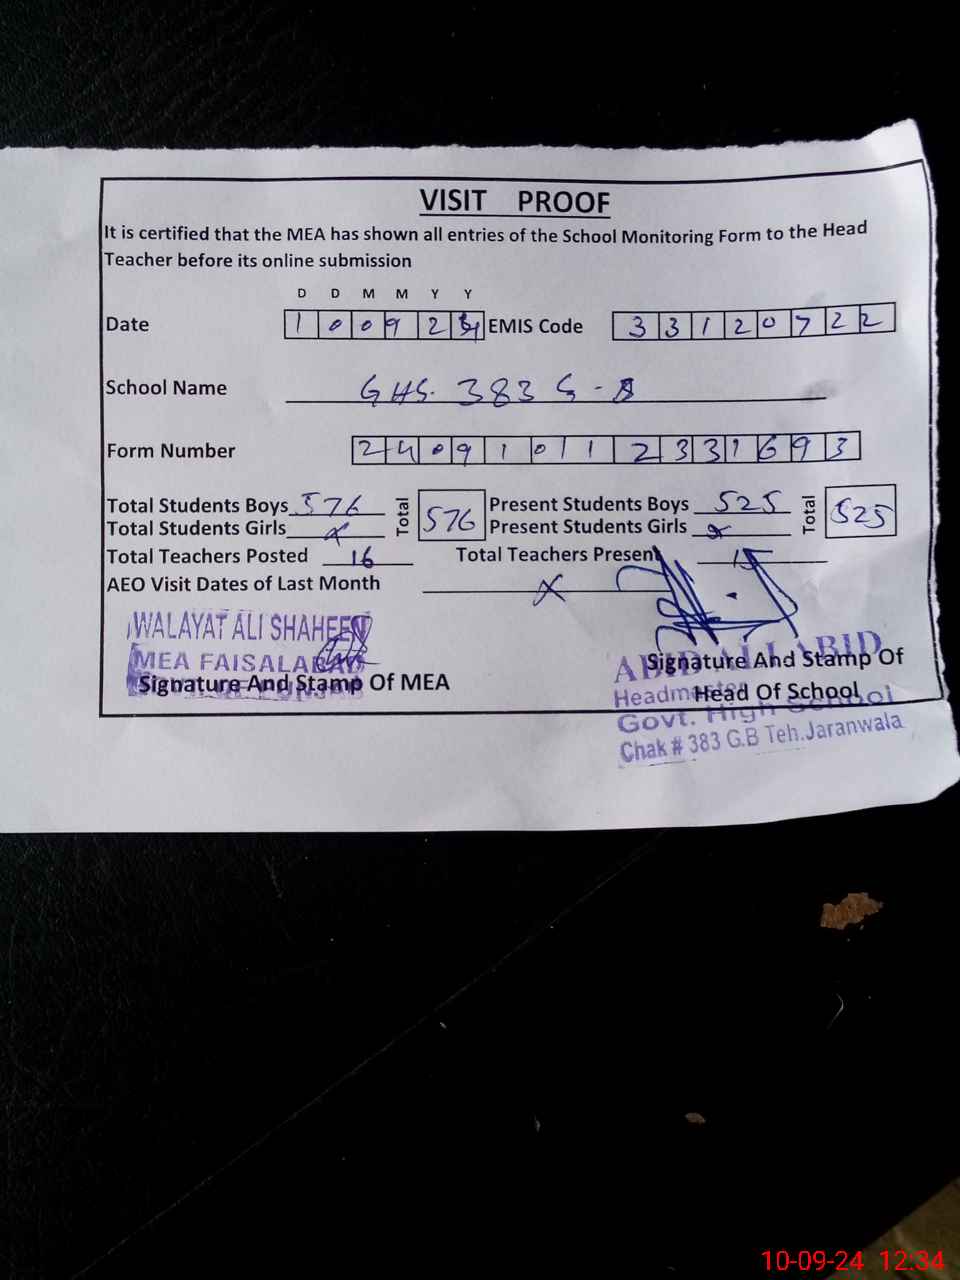 VISIT PROOF
It is certified that the MEA has shown all entries of the School Monitoring Form to the Head
Teacher before its online submission
D D M M Y Y
Date 1 0 0 9 2 4 EMIS Code 3 3 1 2 0 7 2 2
School Name GHS. 383 G-B
Form Number 2 4 0 9 1 0 1 1 2 3 3 1 6 9 3
Total Students Boys 576 Total 576 Present Students Boys 525 Total 525
Total Students Girls x Present Students Girls x
Total Teachers Posted 16 Total Teachers Present 15
AEO Visit Dates of Last Month x
WALAYAT ALI SHAHEEN
MEA FAISALABAD
Signature And Stamp Of MEA
ABID ALI ABID
Signature And Stamp Of
Headmaster
Head Of School
Govt. High School
Chak # 383 G.B Teh.Jaranwala
10-09-24 12:34